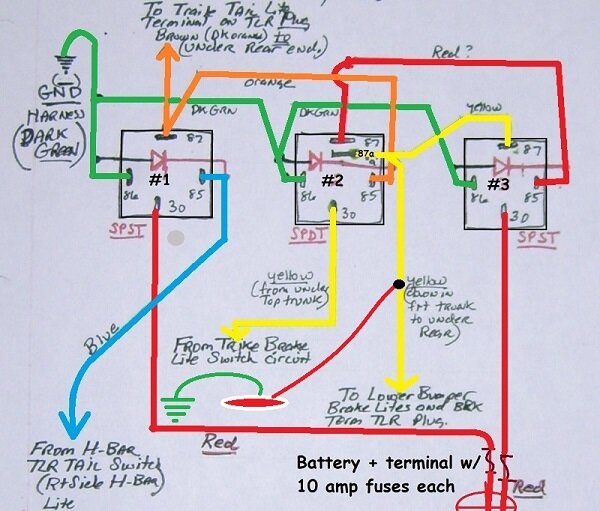 To Traile Tail Lite
Terminal on TLR Plug
Brown (DK orange) to
(under Rear end.)
GND
(-)
HARNESS
(DARK
GREEN)
orange
DKGRN
DKGRN
Red?
yellow
87
#1
86
85
30
SPST
87
87a
#2
86
85
30
SPDT
87
#3
86
85
30
SPST
yellow
(from under
Top trunk)
yellow
(down in
frt trunk
to under
Rear)
Blue
From Trike Brake
Lite Switch circuit
To Lower Bumper
Brake Lites and BRK
Term TLR Plug.
Red
From H-Bar
TLR TAIL Switch
(Rt Side H-Bar)
Lite
Battery + terminal w/
10 amp fuses each
Red